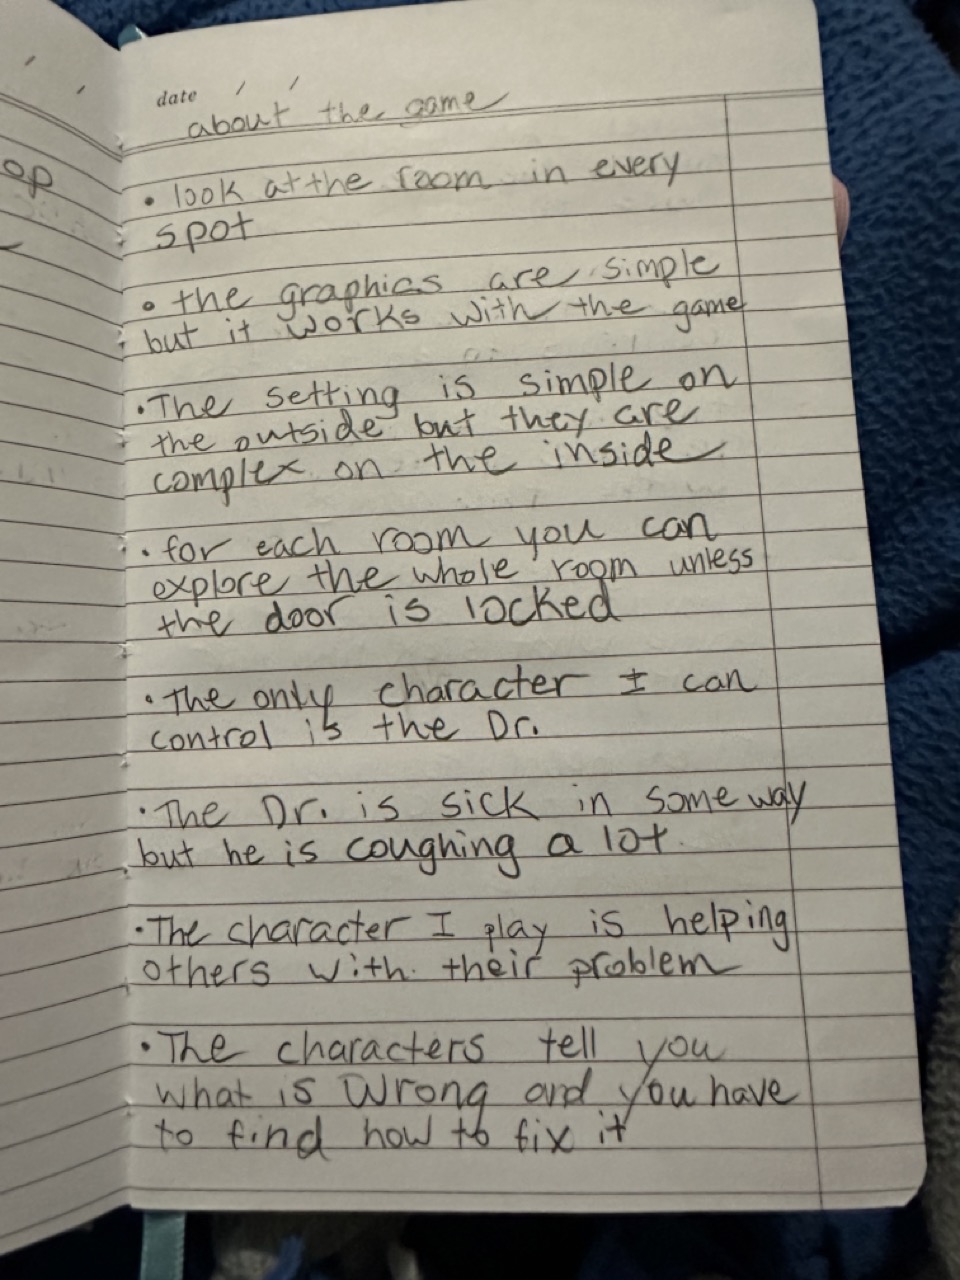 op
date / /
about the game
• look at the room in every
spot
• the graphics are simple
but it works with the game
• The setting is simple on
the outside but they are
complex on the inside
• for each room you can
explore the whole room unless
the door is locked
• The only character I can
control is the Dr.
• The Dr. is sick in some way
but he is coughing a lot.
• The character I play is helping
others with their problem
• The characters tell you
what is wrong and you have
to find how to fix it